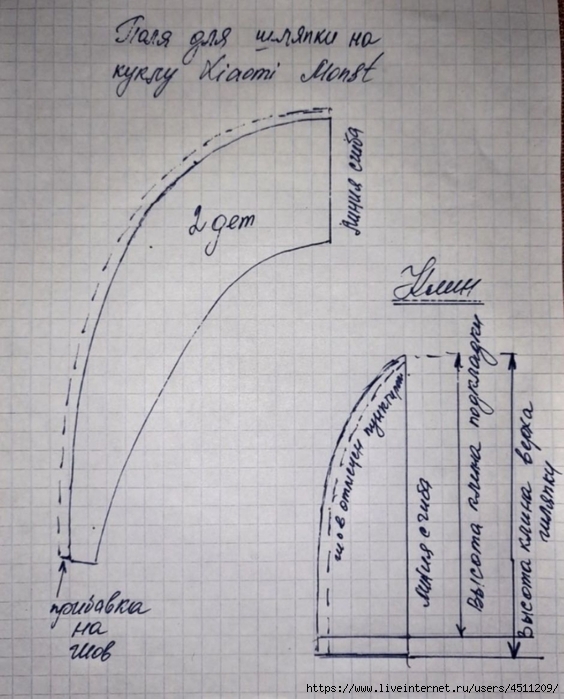 Поля для шляпки на
куклу Xiaomi Monst
Линия сгиба
2 дет
Клин
шов отмечен пунктиром
Линия сгиба
Высота клина подкладки
Высота клина верха
шляпки
прибавка
на
шов
https://www.liveinternet.ru/users/4511209/